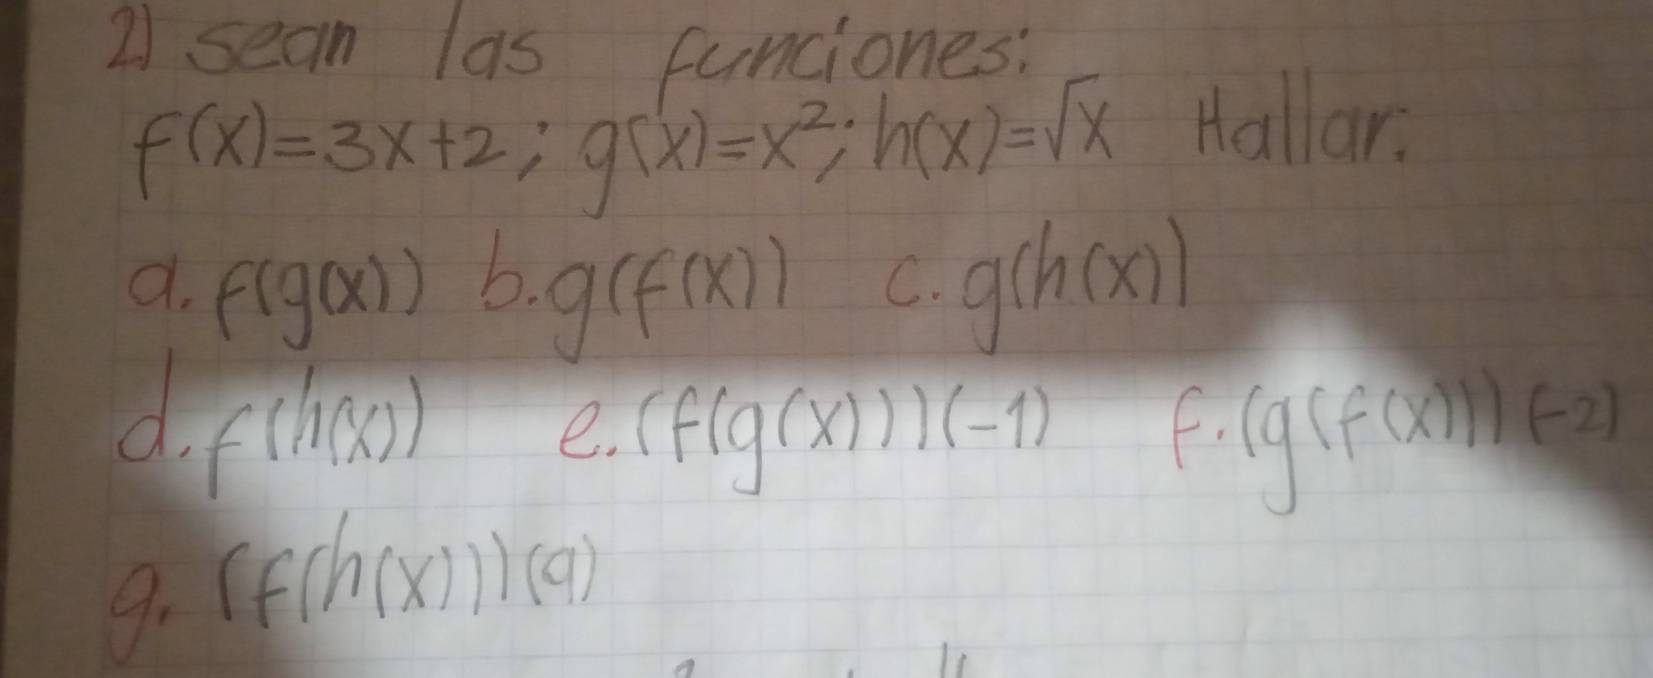 2) sean las funciones:
f(x)=3x+2; g(x)=x²; h(x)=√x Hallar:
a. f(g(x)) b. g(f(x)) c. g(h(x))
d. f(h(x)) e. (f(g(x)))(-1) f. (g(f(x)))(-2)
g. (f(h(x)))(9)